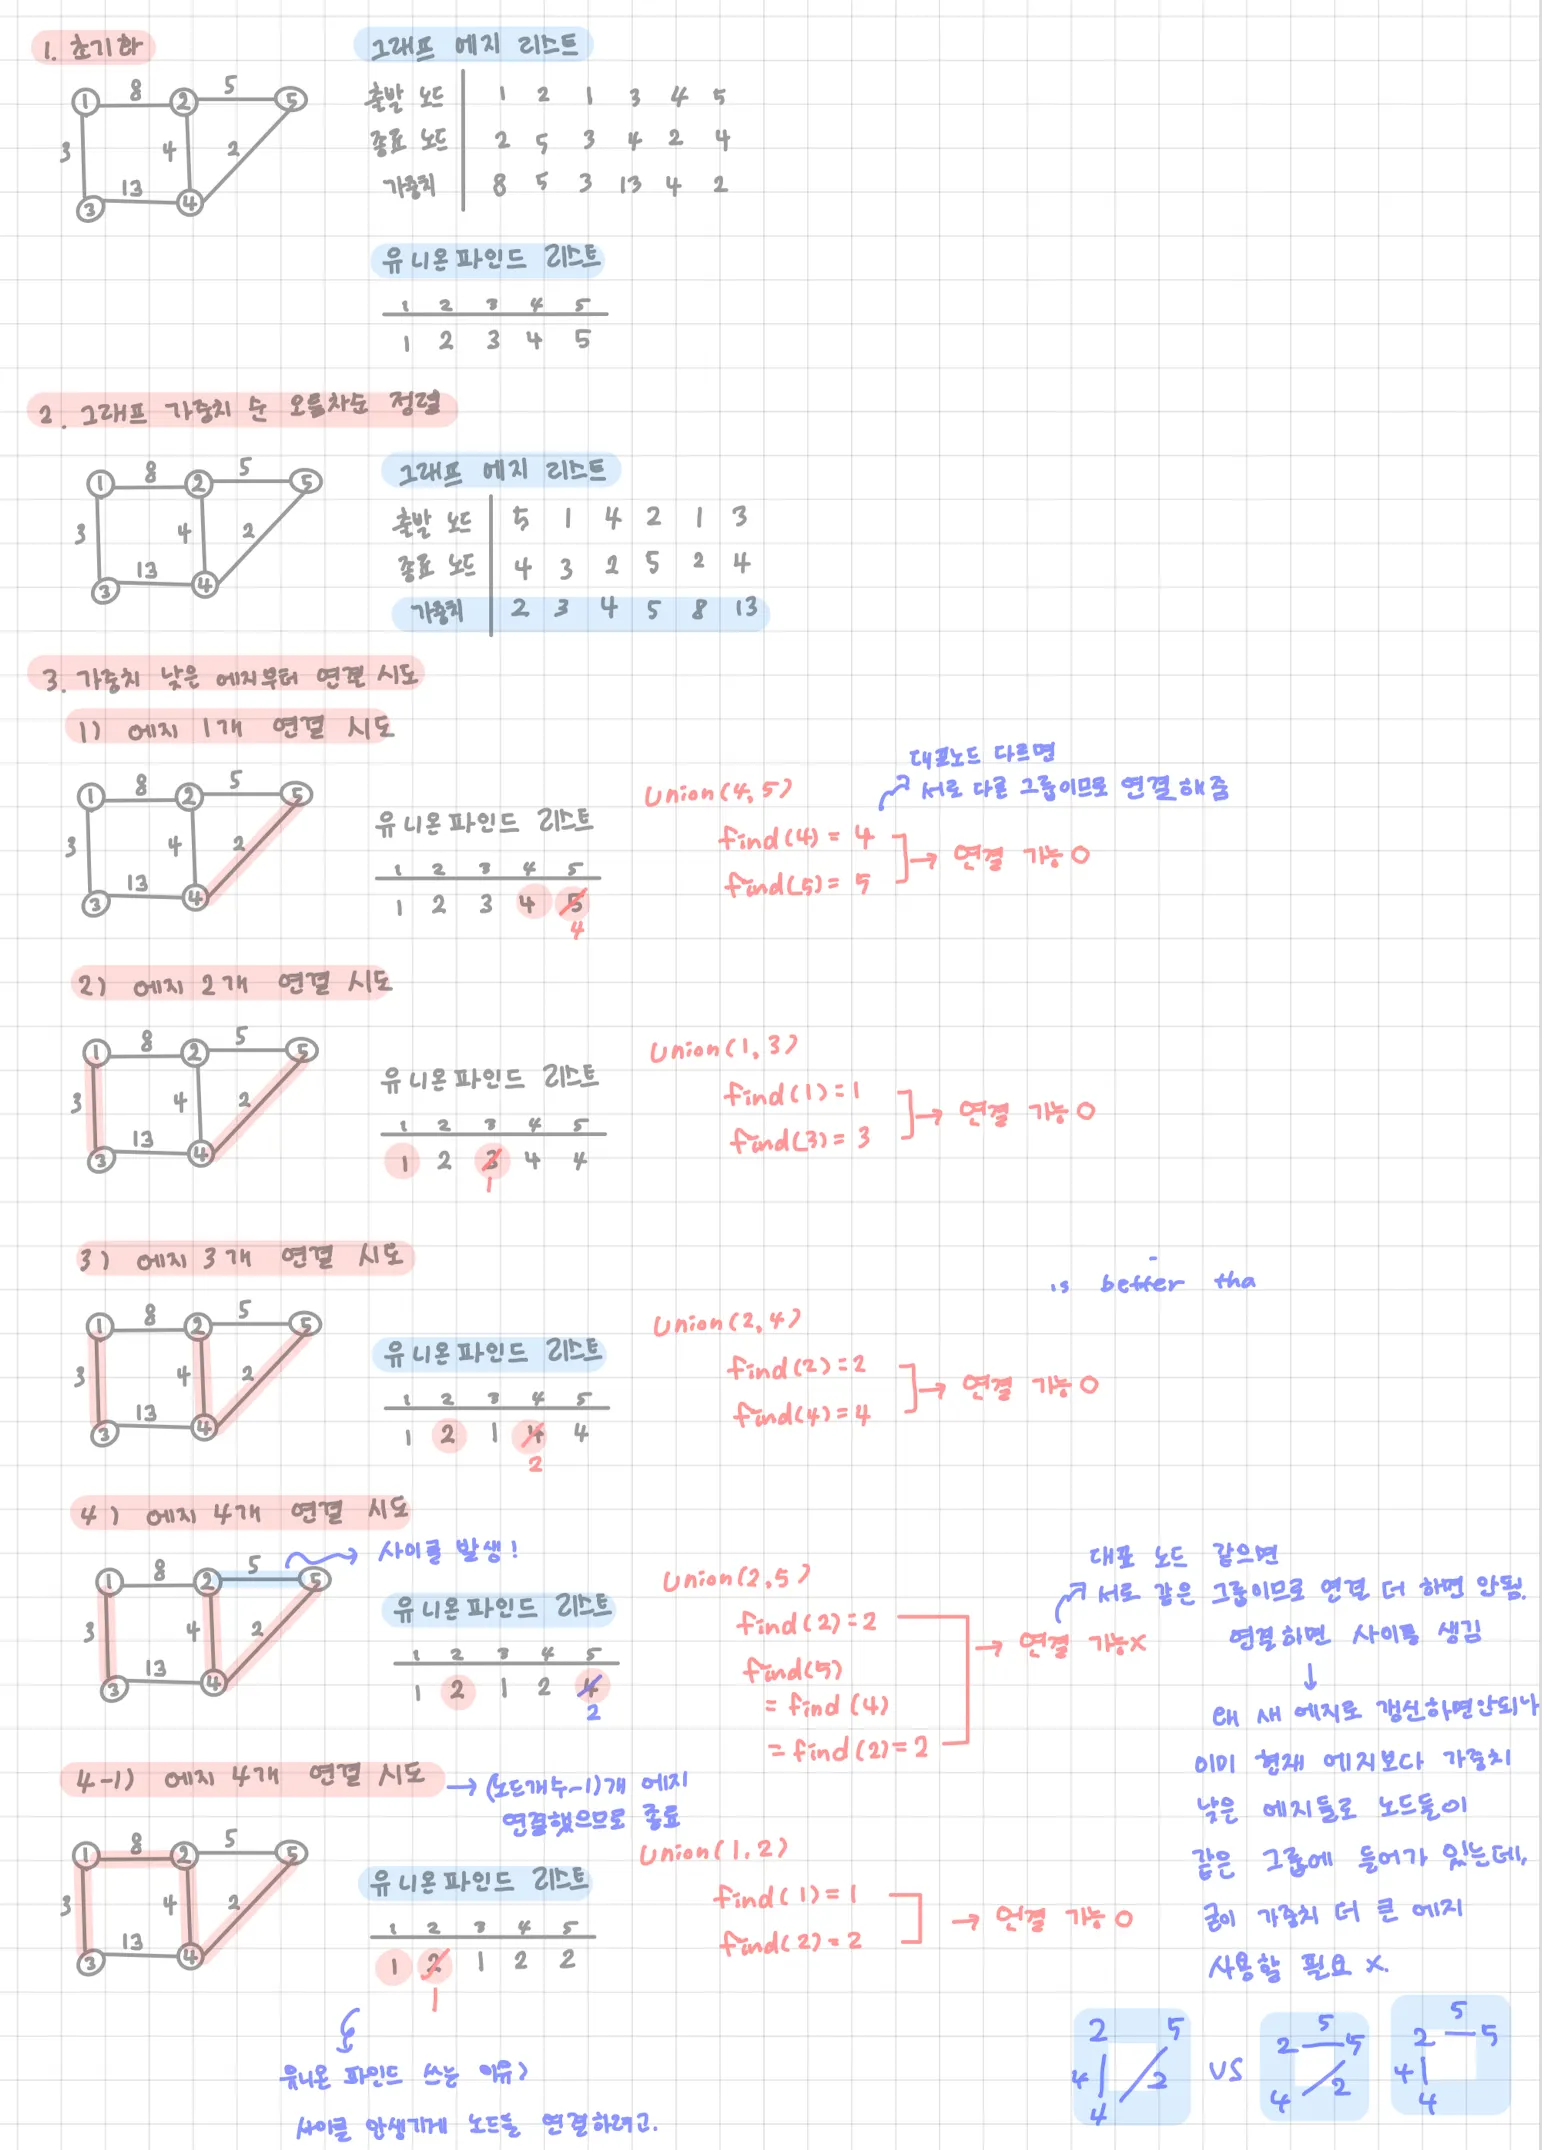 1. 초기화
8 5
1 2 5
3 4 2
13
3 4
그래프 에지 리스트
출발 노드 1 2 1 3 4 5
종료 노드 2 5 3 4 2 4
가중치 8 5 3 13 4 2
유니온파인드 리스트
1 2 3 4 5
1 2 3 4 5
2. 그래프 가중치 순 오름차순 정렬
8 5
1 2 5
3 4 2
13
3 4
그래프 에지 리스트
출발 노드 5 1 4 2 1 3
종료 노드 4 3 2 5 2 4
가중치 2 3 4 5 8 13
3. 가중치 낮은 에지부터 연결 시도
1) 에지 1개 연결 시도
8 5
1 2 5
3 4 2
13
3 4
유니온파인드 리스트
1 2 3 4 5
1 2 3 4 5
4
Union(4,5)
find(4) = 4
find(5) = 5
→ 연결 가능 O
대표노드 다르면
서로 다른 그룹이므로 연결해줌
2) 에지 2개 연결 시도
8 5
1 2 5
3 4 2
13
3 4
유니온파인드 리스트
1 2 3 4 5
1 2 3 4 4
1
Union(1,3)
find(1)=1
find(3)= 3
→ 연결 가능 O
3) 에지 3개 연결 시도
8 5
1 2 5
3 4 2
13
3 4
유니온파인드 리스트
1 2 3 4 5
1 2 1 4 4
2
Union(2,4)
find(2)=2
find(4)=4
→ 연결 가능 O
is better tha
4) 에지 4개 연결 시도
8 5
1 2 5
3 4 2
13
3 4
사이클 발생!
유니온파인드 리스트
1 2 3 4 5
1 2 1 2 4
2
Union(2,5)
find(2)=2
find(5)
= find(4)
= find(2)=2
→ 연결 가능X
대표 노드 같으면
서로 같은 그룹이므로 연결 더 하면 안됨.
연결하면 사이클 생김
↓
왜 새 에지로 갱신하면안되냐
이미 현재 에지보다 가중치
낮은 에지들로 노드들이
같은 그룹에 들어가 있는데,
굳이 가중치 더 큰 에지
사용할 필요 X.
4-1) 에지 4개 연결 시도
→ (노드개수-1)개 에지
연결했으므로 종료
8 5
1 2 5
3 4 2
13
3 4
유니온파인드 리스트
1 2 3 4 5
1 2 1 2 2
1
Union(1,2)
find(1)=1
find(2)=2
→ 연결 가능 O
유니온 파인드 쓰는 이유?
사이클 안생기게 노드들 연결하려고.
2 5
4 2
4
VS
5
2 5
4 2
5
2 5
4
4